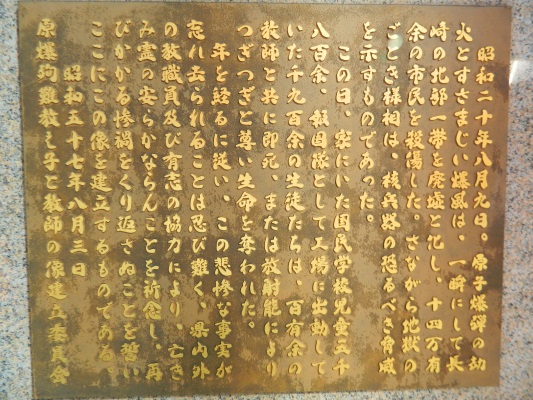 昭和二十年八月九日。原子爆弾の劫
火とすさまじい爆風は、一瞬にして長
崎の北部一帯を廃墟と化し、十四万有
余の市民を殺傷した。さながら地獄の
ごとき様相は、核兵器の恐るべき脅威
を示すものであった。
この日、家にいた国民学校児童五千
八百余、報国隊として工場に出動して
いた千九百余の生徒たちは、百有余の
教師と共に即死、または放射能により
つぎつぎと尊い生命を奪われた。
年を経るに従い、この悲惨な事実が
忘れ去られることは忍び難く、県内外
の教職員及び有志の協力により、亡き
み霊の安らかならんことを祈念し、再
びかかる惨禍をくり返さぬことを誓い
ここにこの像を建立するものである。
昭和五十七年八月三日
原爆殉難教え子と教師の像建立委員会